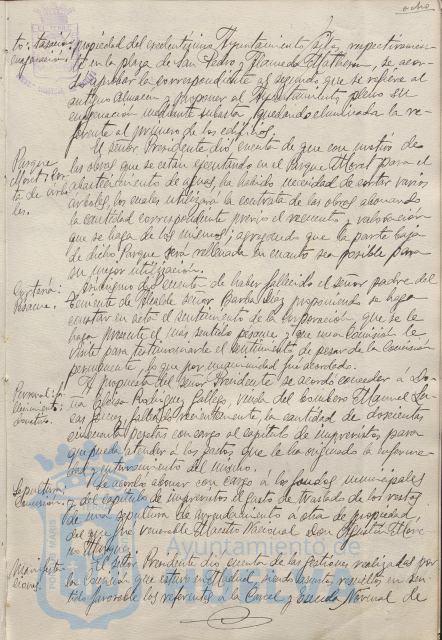 ocho
propiedad del Excelentísimo Ayuntamiento, sitas respectivamen-
te en la plaza de San Pedro y Alameda, se acor-
dó aprobar la correspondiente al segundo que se refiere al
antiguo Almacén y proponer al Ayuntamiento pleno su
enajenación mediante subasta, quedando eliminada la re-
ferente al primero de los edificios.
Parque
Moret: cor-
ta de árbo-
les.
El señor Presidente dió cuenta de que con motivo de
las obras que se están ejecutando en el Parque Moret para el
abastecimiento de aguas, ha habido necesidad de cortar varios
árboles, los cuales utilizará la contrata de las obras abonando
la cantidad correspondiente previo el recuento y valoración
que se haga de los mismos; agregando que la parte baja
de dicho Parque será rellenada en cuanto sea posible para
su mejor utilización.
Pésame.
dió cuenta de haber fallecido el señor padre del
Teniente de Alcalde señor Barba Díaz proponiendo se haga
constar en acta el sentimiento de la Corporación, que se le
haga presente el más sentido pésame y que una Comisión le
visite para testimoniarle el sentimiento de pesar de la Comisión
permanente, lo que por unanimidad fué acordado.
A propuesta del señor Presidente se acordó conceder a Do-
ña Rodríguez Gallego, viuda del bombero Manuel
fallecido recientemente, la cantidad de doscientas
cincuenta pesetas con cargo al capítulo de imprevistos para
que pueda atender a los gastos que le ha originado la enferme-
dad y enterramiento del mismo.
Sepultura
Se acordó abonar con cargo á los fondos municipales
y del capítulo de imprevistos el gasto de traslado de los restos
de una sepultura de arrendamiento a otra de propiedad,
del que fué venerable Maestro Nacional Don Agustín More-
no Márquez.
Manifesta-
ciones.
El señor Presidente dió cuenta de las gestiones realizadas por
la Comisión que estuvo en Madrid, siendo asuntos resueltos en sen-
tido favorable los referentes a la Cárcel y Escuela Normal de
Ayuntamiento de